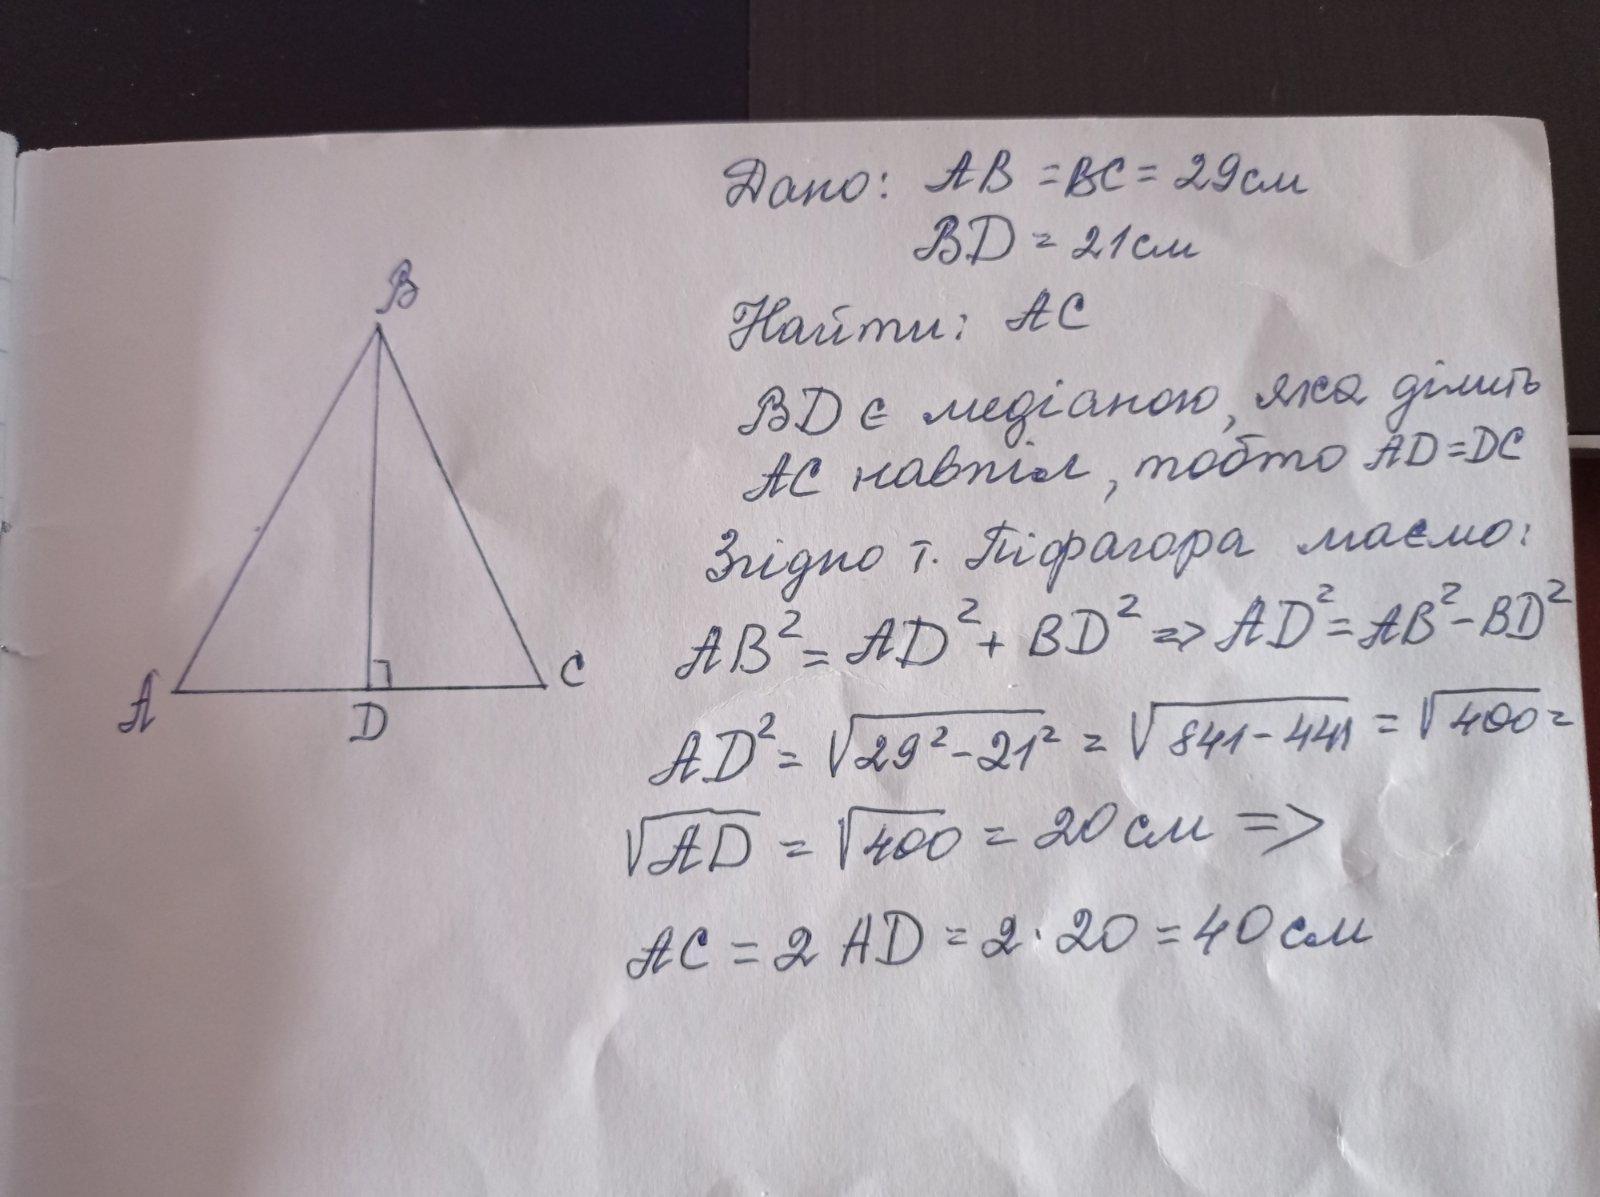 Дано: AB = BC = 29см
BD = 21см
Найти: AC
BD є медіаною, яка ділить
AC навпіл, тобто AD=DC
Згідно т. Піфагора маємо:
AB² = AD² + BD² => AD² = AB² - BD²
AD² = √29² - 21² = √841 - 441 = √400 =
√AD = √400 = 20 см =>
AC = 2 AD = 2 · 20 = 40 см
B
A
D
C